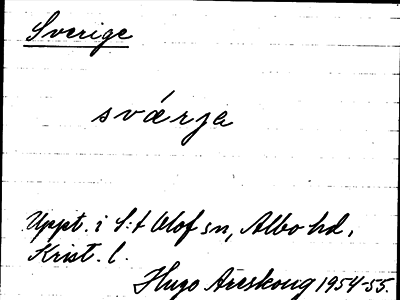 Sverige
svǽrja
Uppt. i S:t Olof sn, Albo hd,
Krist. l.
Hugo Areskoug 1954-55.